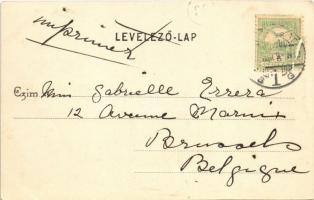 imprimés
LEVELEZŐ-LAP
Czim: Miss Gabrielle Errera
12 Avenue Marnix
Brussels
Belgique